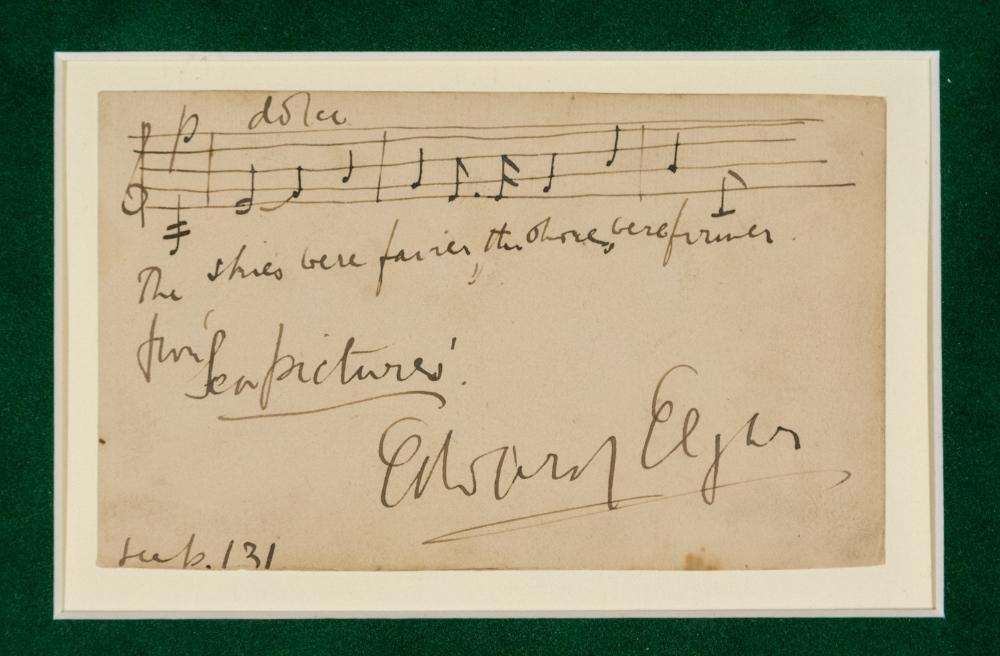 p dolce
The skies were fairer, the shores were firmer.
from
'Sea pictures'.
Edward Elgar
see p. 131